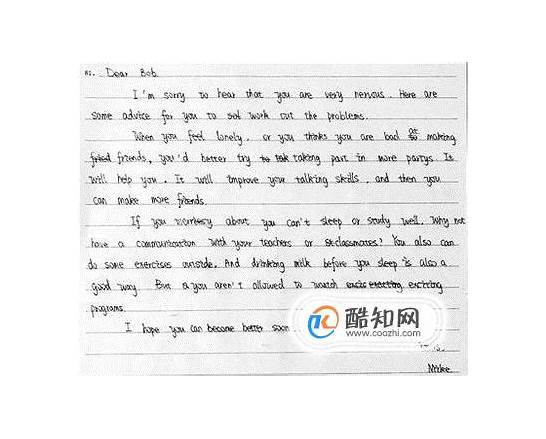 Dear Bob
I'm sorry to hear that you are very nervous. Here are
some advice for you to work out the problems.
When you feel lonely, or you thinks you are bad at making
friends, you'd better try taking part in more partys. It
will help you. It will improve your talking skills, and then you
can make more friends.
If you worry about you can't sleep or study well. Why not
have a communication with your teachers or classmates? You also can
do some exercises outside. And drinking milk before you sleep is also a
good way. But you aren't allowed to watch exciting
programs.
I hope you can become better soon
酷知网
www.coozhi.com